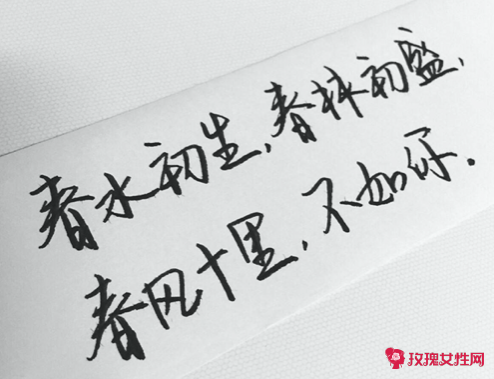 春水初生,春林初盛,
春风十里,不如你.
玫瑰女性网